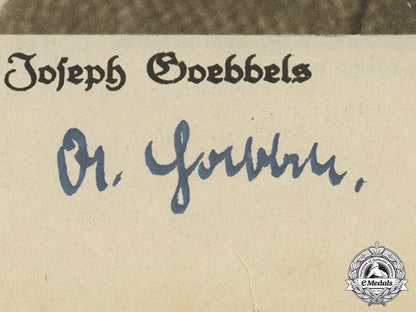 Joseph Goebbels
Dr. Goebbels.
eMedals